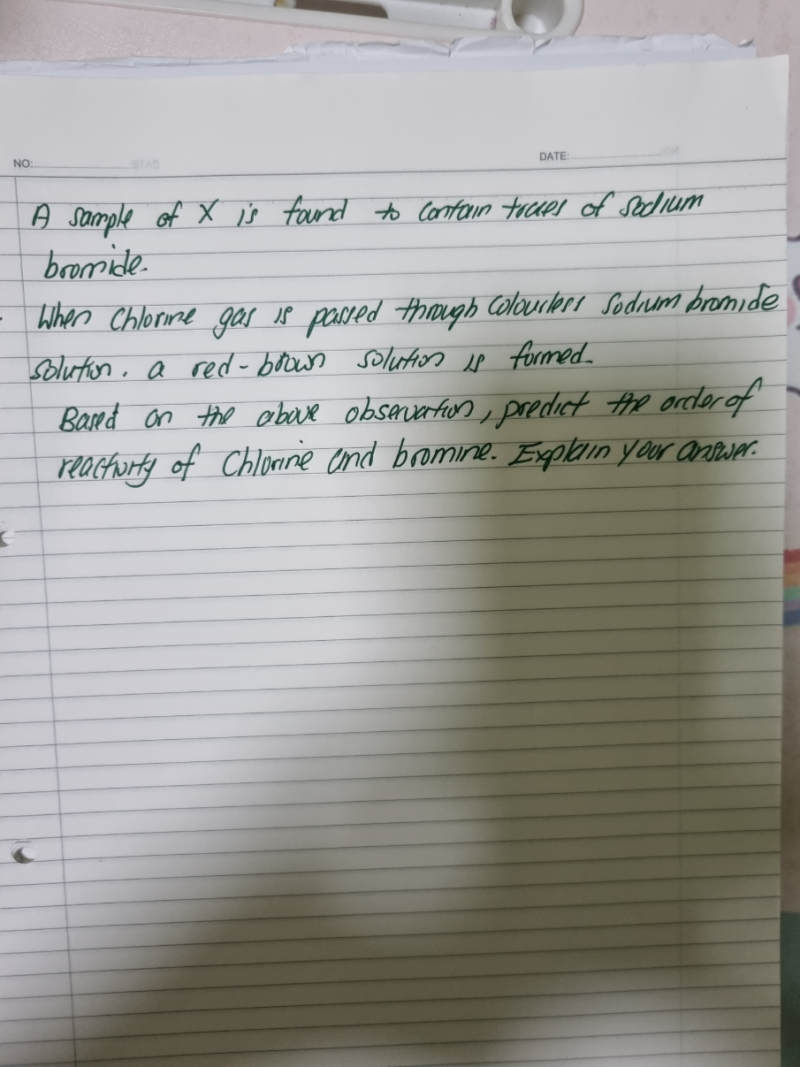 NO:
DATE:
A sample of X is found to contain traces of sodium
bromide.
When Chlorine gas is passed through Colourless Sodium bromide
solution. a red-brown solution is formed.
Based on the above observation, predict the order of
reactivity of Chlorine and bromine. Explain your answer.